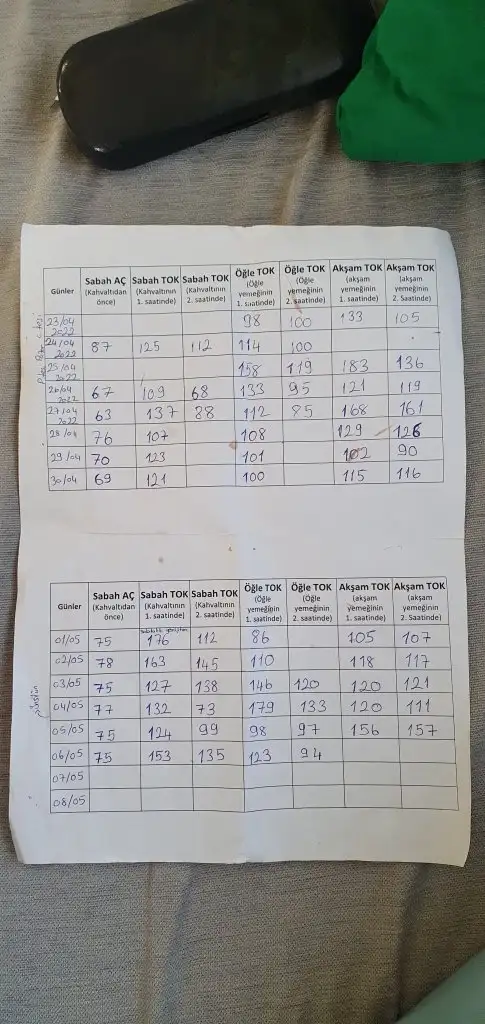 Günler Sabah AÇ (Kahvaltıdan önce) Sabah TOK (Kahvaltının 1. saatinde) Sabah TOK (Kahvaltının 2. saatinde) Öğle TOK (Öğle yemeğinin 1. saatinde) Öğle TOK (Öğle yemeğinin 2. saatinde) Akşam TOK (akşam yemeğinin 1. saatinde) Akşam TOK (akşam yemeğinin 2. Saatinde)
23/04 2022 98 100 133 105
24/04 2022 87 125 112 114 100
25/04 2022 158 119 183 136
26/04 2022 67 109 68 133 95 121 119
27/04 2022 63 137 88 112 85 168 161
28/04 76 107 108 129 126
29/04 70 123 101 102 90
30/04 69 121 100 115 116
Günler Sabah AÇ (Kahvaltıdan önce) Sabah TOK (Kahvaltının 1. saatinde) Sabah TOK (Kahvaltının 2. saatinde) Öğle TOK (Öğle yemeğinin 1. saatinde) Öğle TOK (Öğle yemeğinin 2. saatinde) Akşam TOK (akşam yemeğinin 1. saatinde) Akşam TOK (akşam yemeğinin 2. saatinde)
01/05 75 176 112 86 105 107
02/05 78 163 145 110 118 117
03/05 75 127 138 146 120 120 121
04/05 77 132 73 179 133 120 111
05/05 75 124 99 98 97 156 157
06/05 75 153 135 123 94
07/05
08/05